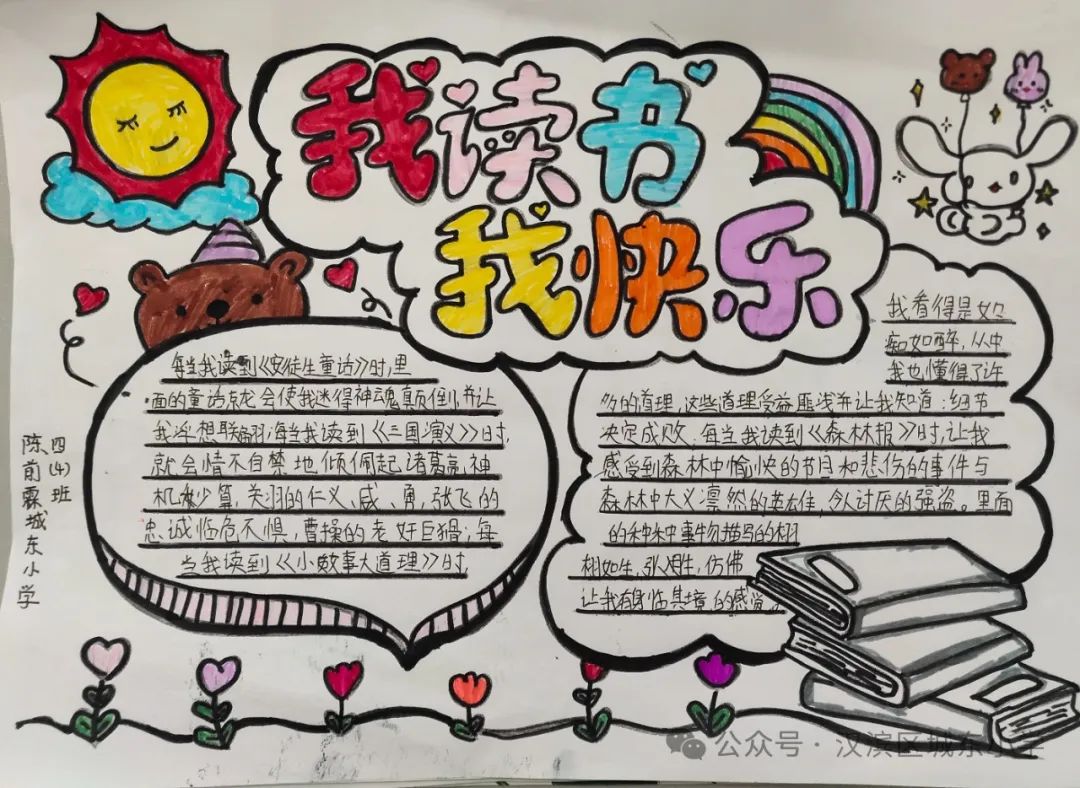 我读书
我快乐
每当我读到《安徒生童话》时,里
面的童话总会使我迷得神魂颠倒,并让
我浮想联翩;每当我读到《三国演义》时,
就会情不自禁地倾佩起诸葛亮神
机妙算,关羽的仁义、威、勇,张飞的
忠诚临危不惧,曹操的老奸巨猾;每
当我读到《小故事大道理》时,
我看得是如
痴如醉,从中
我也懂得了许
多的道理,这些道理受益匪浅并让我知道:细节
决定成败.每当我读到《森林报》时,让我
感受到森林中愉快的节目和悲伤的事件与
森林中大义凛然的英雄,令人讨厌的强盗。里面
的种种事物描写的栩
栩如生,仿佛
让我有身临其境的感觉
四(4)班
陈前霖城东小学
公众号·汉滨区城东小学